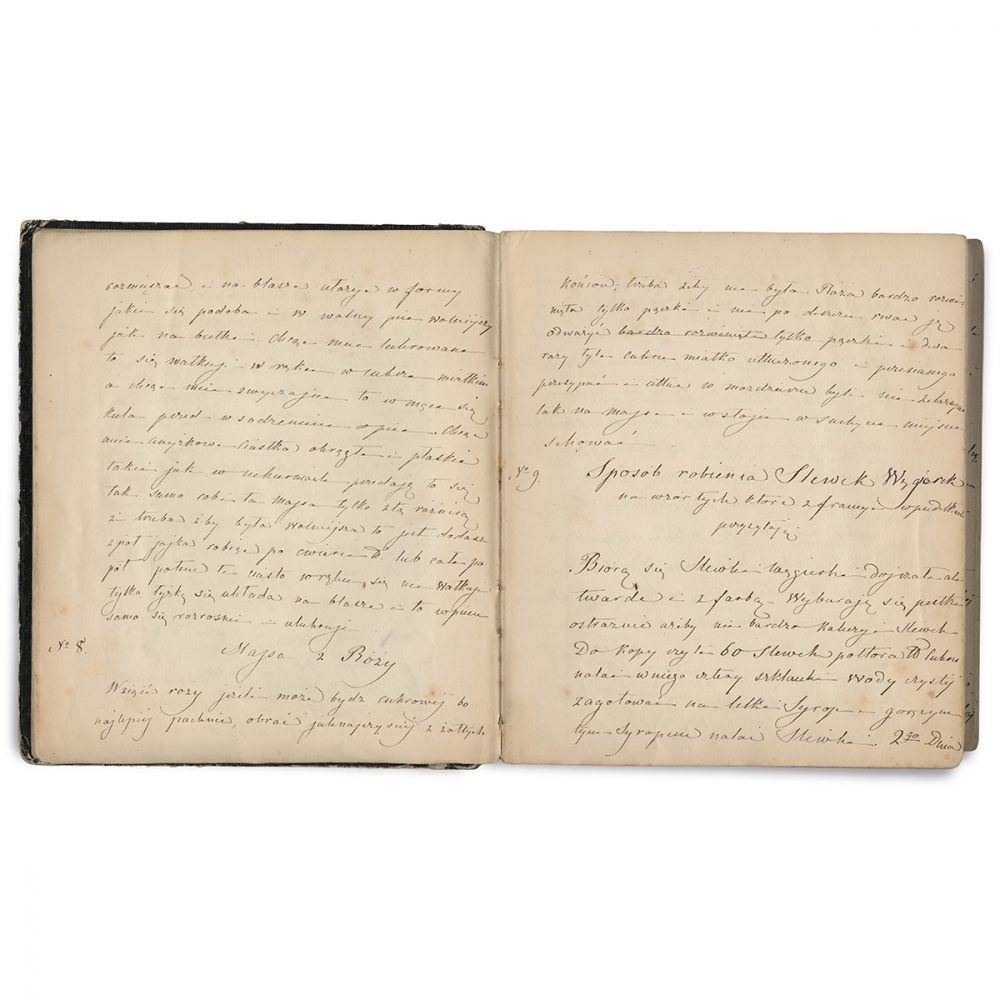 rozmięszać i na blasze utarze w formy
jakie się podoba i w wolny piec wolniejszy
jak na bułki chcąc mieć lukrowane
to się wałkuje w ręku w cukrze miałkim
a chcąc mieć zwyczajne to w mące się
kula przed wsadzeniem w piec. Chcąc
mieć anyżkowe ciastka okrągłe i płaskie
takie jak w cukierniach przedają to się
tak samo robi ta massa tylko z tą różnicą
że trzeba żeby była wolniejsza to jest dodać
z pół jajka robiąc po ćwierci ℔. lub całe po
pół potem te ciasto w ręku się nie wałkuje
tylko łyżką się układa na blasze i to w piecu
samo się rozrośnie i ulukruje
No 8.
Massa z Róży
Wziąść rozy jeżeli może bydz cukrowej bo
najlepiej pachnie, obrać jaknajczyściej z żółtych
końców, trzeba żeby nie była Róża bardzo rozwi-
nięta tylko pączki i nie po deszczu rwać ją
odważyć bardzo rozwinięte tylko pączki i dwa
razy tyle cukru miałko utłuczonego i przesianego
przesypać i utłuc w moździerzu byle nie żelaznym
tak na massę i w słoje w suchym miejscu
schować
No 9.
Sposób robienia Sliwek Węgierek
na wzór tych które z francyi w pudełkach
przysyłają
Biorą się Sliwki Węgierki dojrzałe ale
twarde i z farbą. Wybierają się pestki
ostrożnie ażeby nie bardzo kaleczyć Sliwek
Do kopy czyli 60 Sliwek półtora ℔ cukru
nalać w niego cztery szklanki Wody czystej
zagotować na letki Syrop i gorącym
tym Syropem nalać Sliwki. 2go Dnia